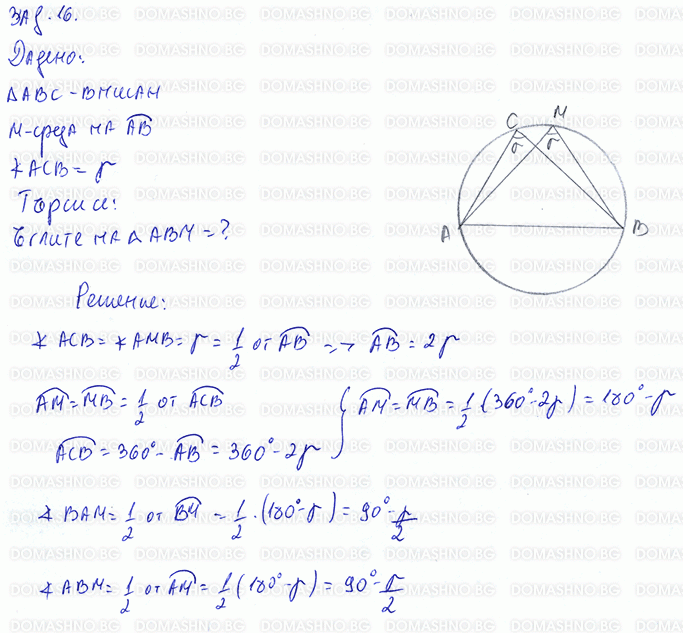 Зад. 16.
Дадено:
△ABC - вписан
M - среда на A͡B
∢ACB = γ
Търси се:
Ъглите на △ABM = ?
C M
γ γ
A B
Решение:
∢ACB = ∢AMB = γ = 1/2 от A͡B => A͡B = 2γ
A͡M = M͡B = 1/2 от A͡C͡B
A͡C͡B = 360° - A͡B = 360° - 2γ } A͡M = M͡B = 1/2 (360° - 2γ) = 180° - γ
∢BAM = 1/2 от B͡M = 1/2 . (180° - γ) = 90° - γ/2
∢ABM = 1/2 от A͡M = 1/2 (180° - γ) = 90° - γ/2
DOMASHNO.BG